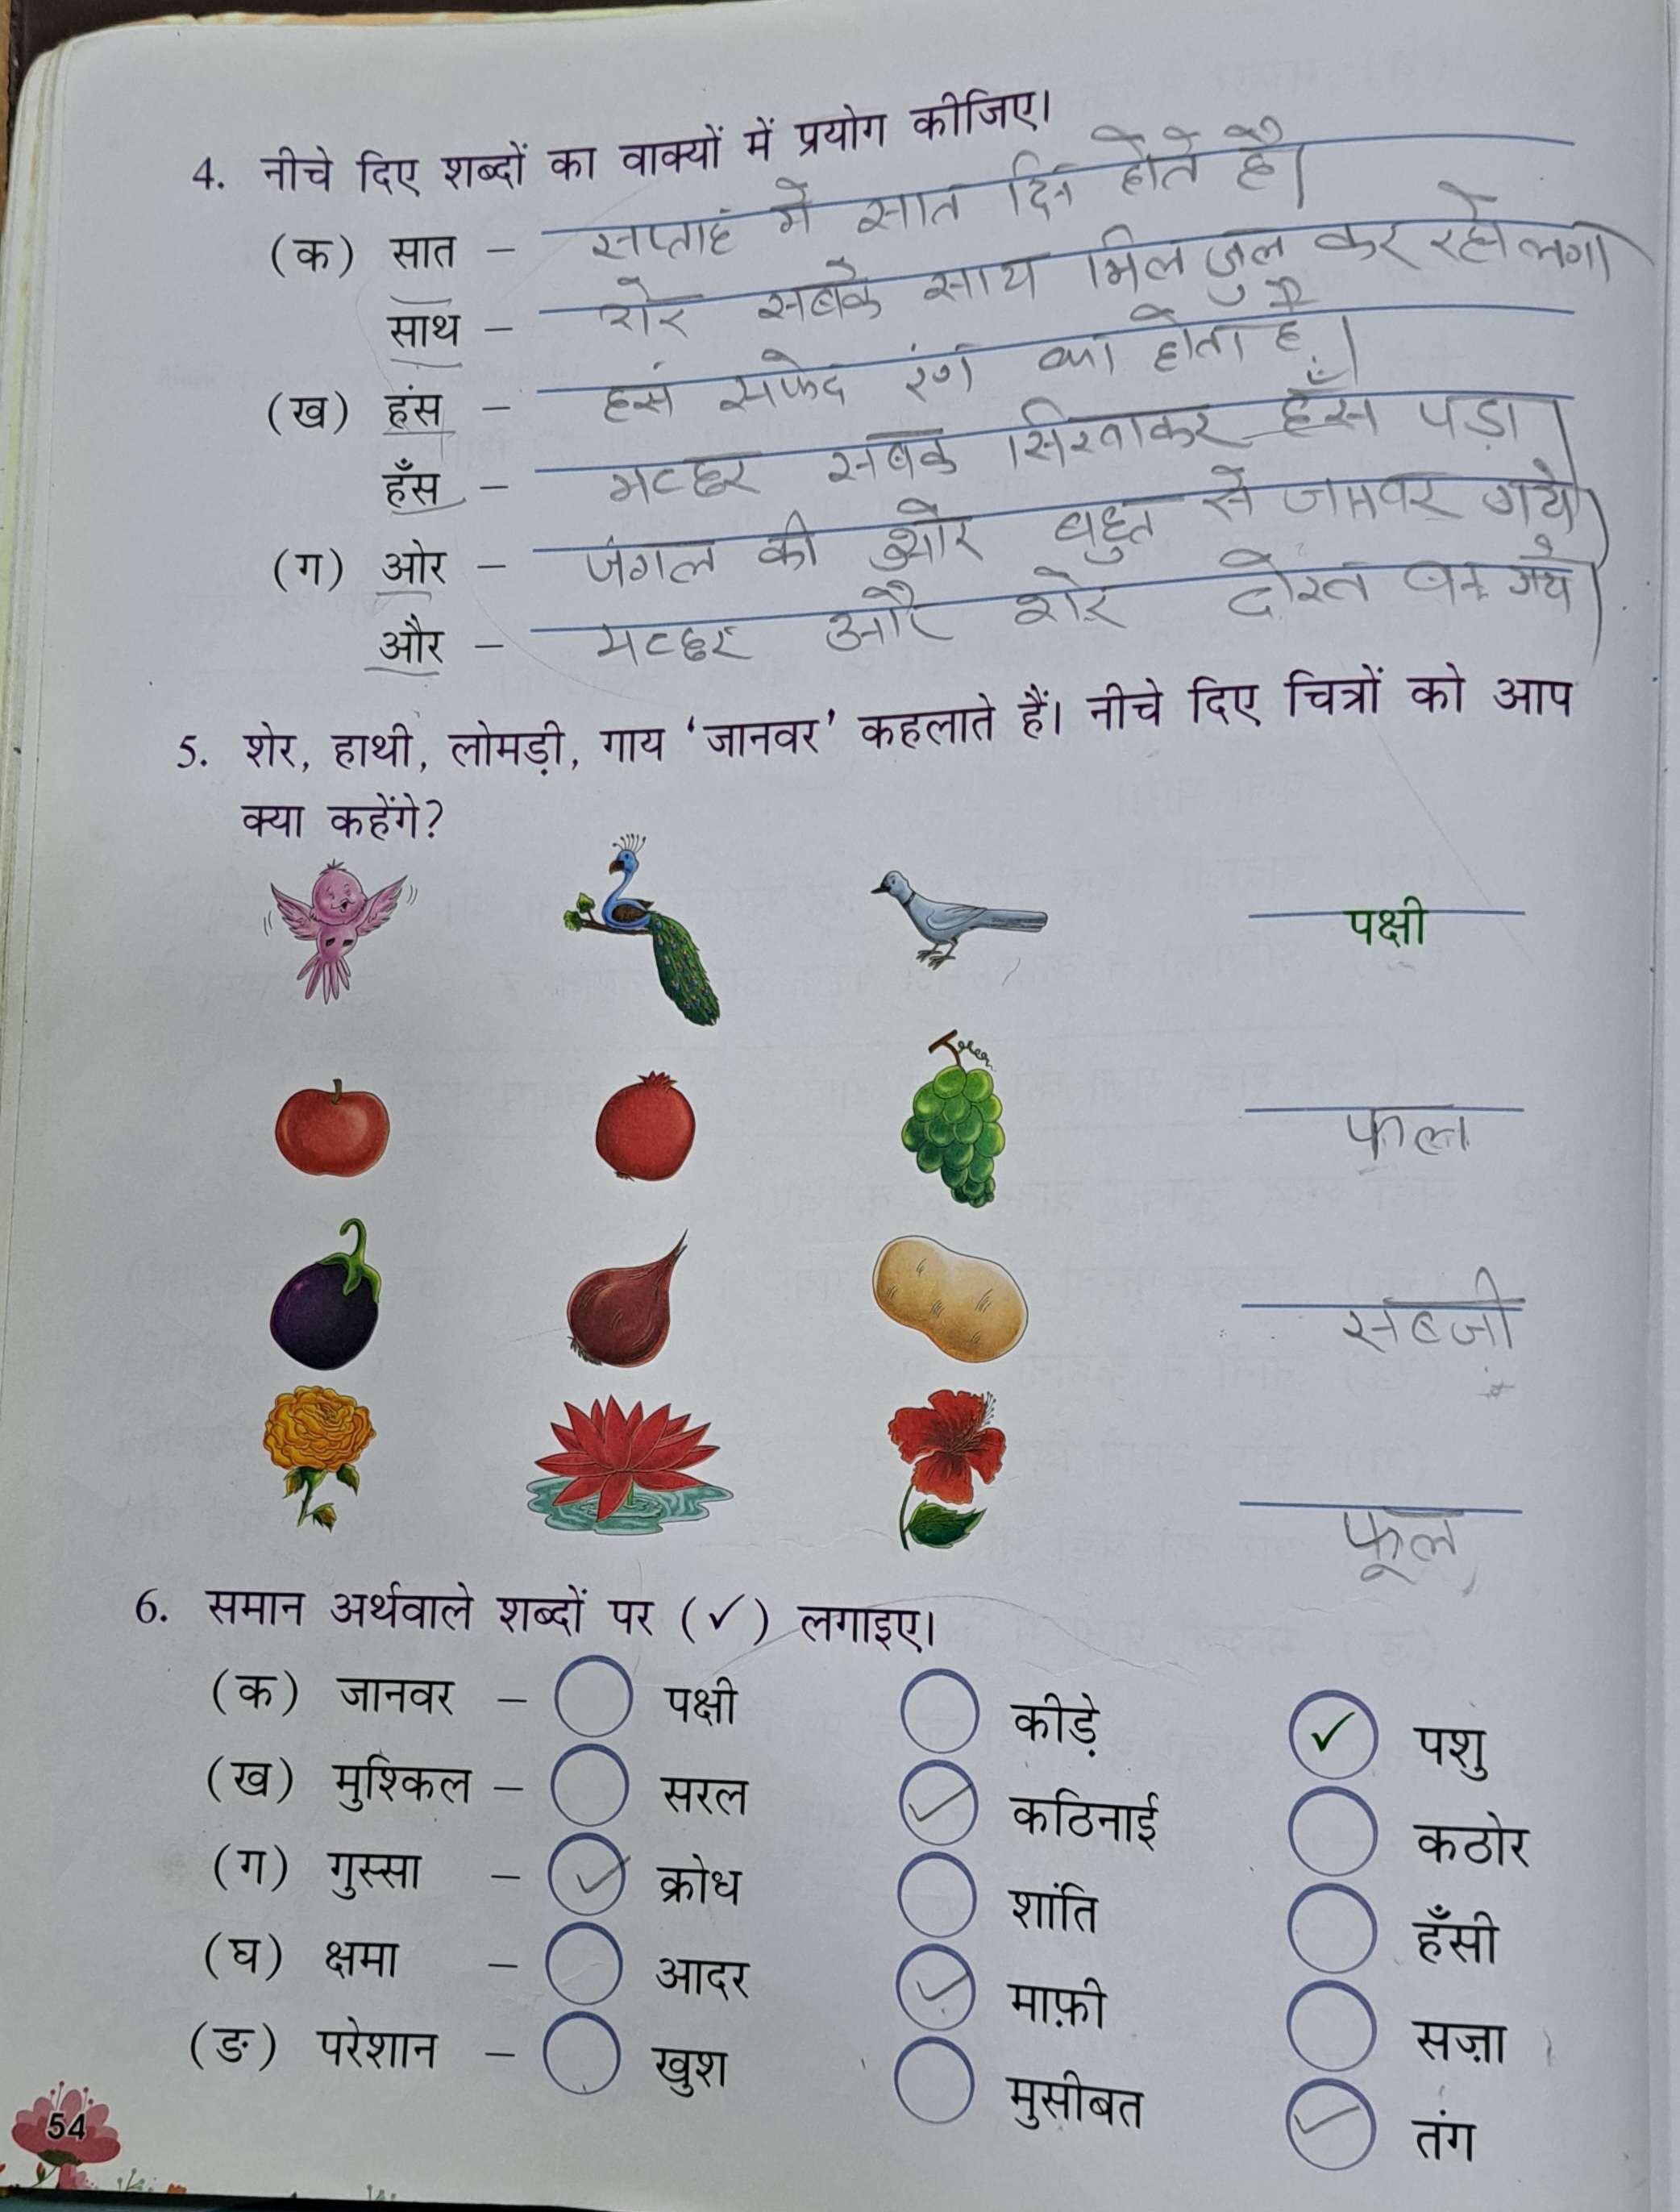 4. नीचे दिए शब्दों का वाक्यों में प्रयोग कीजिए।
(क) सात – सप्ताहं में सात दिन होते है।
साथ – शेर सबके साथ मिल जुल कर रहने लगा
(ख) हंस – हसं सफेद रंग का होता है।
हँस – मच्छर सबक सिखाकर हँस पड़ा।
(ग) ओर – जंगल की ओर बहुत से जानवर गये।
और – मच्छर और शेर दोस्त बन गये।
5. शेर, हाथी, लोमड़ी, गाय ‘जानवर’ कहलाते हैं। नीचे दिए चित्रों को आप
क्या कहेंगे?
पक्षी
फल
सबजी
फूल
6. समान अर्थवाले शब्दों पर (✓) लगाइए।
(क) जानवर – पक्षी कीड़े ✓ पशु
(ख) मुश्किल – सरल ✓ कठिनाई कठोर
(ग) गुस्सा – ✓ क्रोध शांति हँसी
(घ) क्षमा – आदर ✓ माफ़ी सज़ा
(ङ) परेशान – खुश मुसीबत ✓ तंग
54